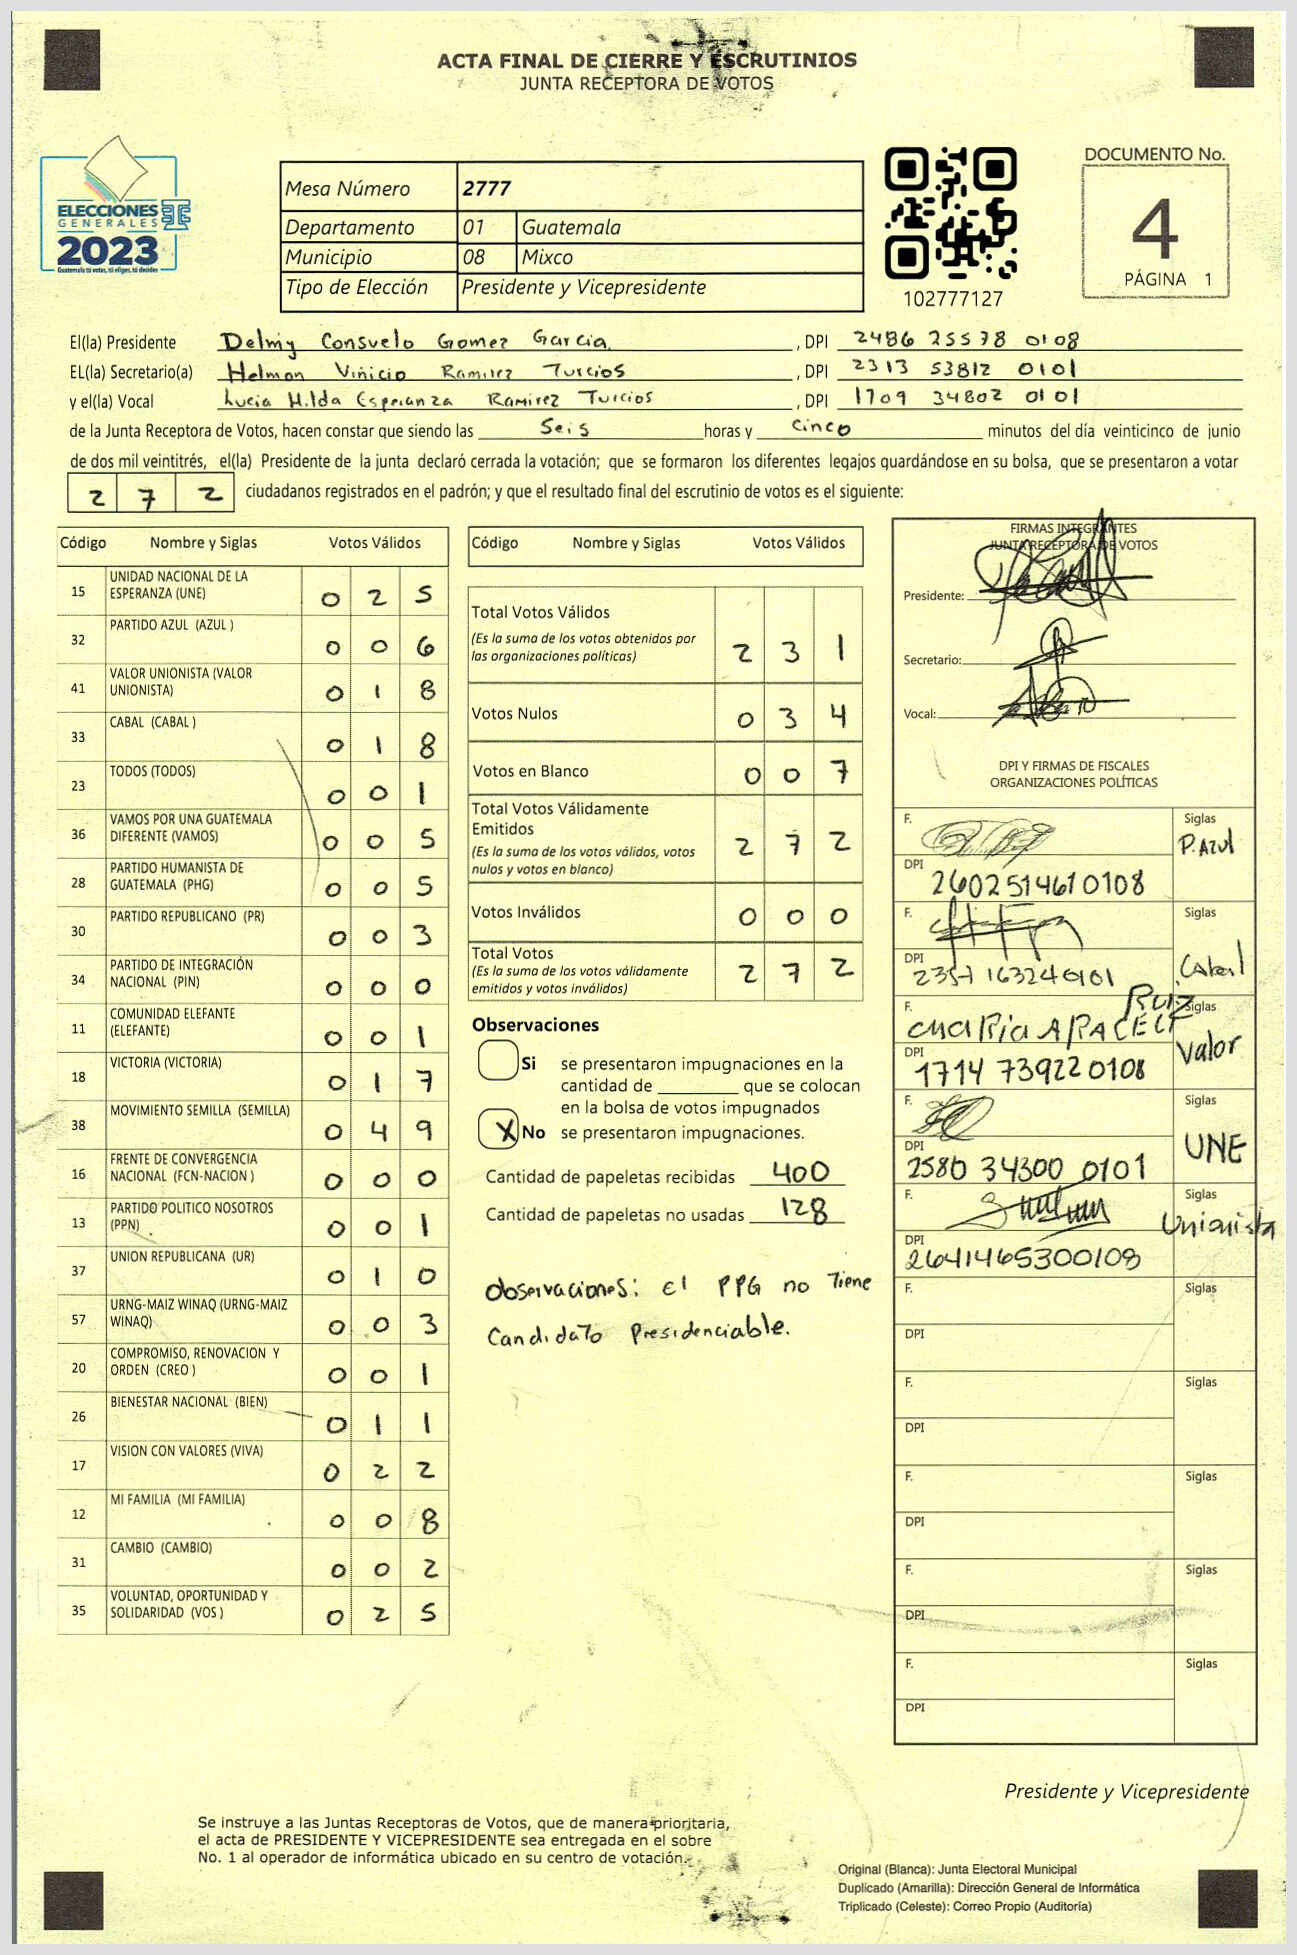 ACTA FINAL DE CIERRE Y ESCRUTINIOS
JUNTA RECEPTORA DE VOTOS
ELECCIONES
GENERALES
2023
Guatemala tú votas, tú eliges, tú decides
Mesa Número 2777
Departamento 01 Guatemala
Municipio 08 Mixco
Tipo de Elección Presidente y Vicepresidente
102777127
DOCUMENTO No.
4
PÁGINA 1
El(la) Presidente Delmy Consuelo Gomez Garcia, DPI 2486 25578 0108
EL(la) Secretario(a) Helmon Vinicio Ramirez Turcios, DPI 2313 53812 0101
y el(la) Vocal Lucia Hilda Esperanza Ramirez Turcios, DPI 1709 34802 0101
de la Junta Receptora de Votos, hacen constar que siendo las Seis horas y Cinco minutos del día veinticinco de junio
de dos mil veintitrés, el(la) Presidente de la junta declaró cerrada la votación; que se formaron los diferentes legajos guardándose en su bolsa, que se presentaron a votar
2 7 2 ciudadanos registrados en el padrón; y que el resultado final del escrutinio de votos es el siguiente:
Código Nombre y Siglas Votos Válidos
15 UNIDAD NACIONAL DE LA ESPERANZA (UNE) 0 2 5
32 PARTIDO AZUL (AZUL ) 0 0 6
41 VALOR UNIONISTA (VALOR UNIONISTA) 0 1 8
33 CABAL (CABAL ) 0 1 8
23 TODOS (TODOS) 0 0 1
36 VAMOS POR UNA GUATEMALA DIFERENTE (VAMOS) 0 0 5
28 PARTIDO HUMANISTA DE GUATEMALA (PHG) 0 0 5
30 PARTIDO REPUBLICANO (PR) 0 0 3
34 PARTIDO DE INTEGRACIÓN NACIONAL (PIN) 0 0 0
11 COMUNIDAD ELEFANTE (ELEFANTE) 0 0 1
18 VICTORIA (VICTORIA) 0 1 7
38 MOVIMIENTO SEMILLA (SEMILLA) 0 4 9
16 FRENTE DE CONVERGENCIA NACIONAL (FCN-NACION ) 0 0 0
13 PARTIDO POLITICO NOSOTROS (PPN) 0 0 1
37 UNION REPUBLICANA (UR) 0 1 0
57 URNG-MAIZ WINAQ (URNG-MAIZ WINAQ) 0 0 3
20 COMPROMISO, RENOVACION Y ORDEN (CREO ) 0 0 1
26 BIENESTAR NACIONAL (BIEN) 0 1 1
17 VISION CON VALORES (VIVA) 0 2 2
12 MI FAMILIA (MI FAMILIA) 0 0 8
31 CAMBIO (CAMBIO) 0 0 2
35 VOLUNTAD, OPORTUNIDAD Y SOLIDARIDAD (VOS ) 0 2 5
Código Nombre y Siglas Votos Válidos
Total Votos Válidos 2 3 1
(Es la suma de los votos obtenidos por
las organizaciones políticas)
Votos Nulos 0 3 4
Votos en Blanco 0 0 7
Total Votos Válidamente
Emitidos 2 7 2
(Es la suma de los votos válidos, votos
nulos y votos en blanco)
Votos Inválidos 0 0 0
Total Votos 2 7 2
(Es la suma de los votos válidamente
emitidos y votos inválidos)
Observaciones
Si se presentaron impugnaciones en la
cantidad de ________ que se colocan
en la bolsa de votos impugnados
X No se presentaron impugnaciones.
Cantidad de papeletas recibidas 400
Cantidad de papeletas no usadas 128
Observaciones: el PPG no Tiene
Candidato Presidenciable.
FIRMAS INTEGRANTES
JUNTA RECEPTORA DE VOTOS
Presidente:
Secretario:
Vocal:
DPI Y FIRMAS DE FISCALES
ORGANIZACIONES POLÍTICAS
F. Siglas P. Azul
DPI 2602514610108
F. Siglas Cabal
DPI 2357 163240101
F. Maria Araceli Ruiz Siglas Valor
DPI 1714 739220108
F. Siglas UNE
DPI 2580 34300 0101
F. Siglas Unionista
DPI 2641465300108
F. Siglas
DPI
F. Siglas
DPI
F. Siglas
DPI
F. Siglas
DPI
F. Siglas
DPI
Presidente y Vicepresidente
Se instruye a las Juntas Receptoras de Votos, que de manera prioritaria,
el acta de PRESIDENTE Y VICEPRESIDENTE sea entregada en el sobre
No. 1 al operador de informática ubicado en su centro de votación.
Original (Blanca): Junta Electoral Municipal
Duplicado (Amarilla): Dirección General de Informática
Triplicado (Celeste): Correo Propio (Auditoría)